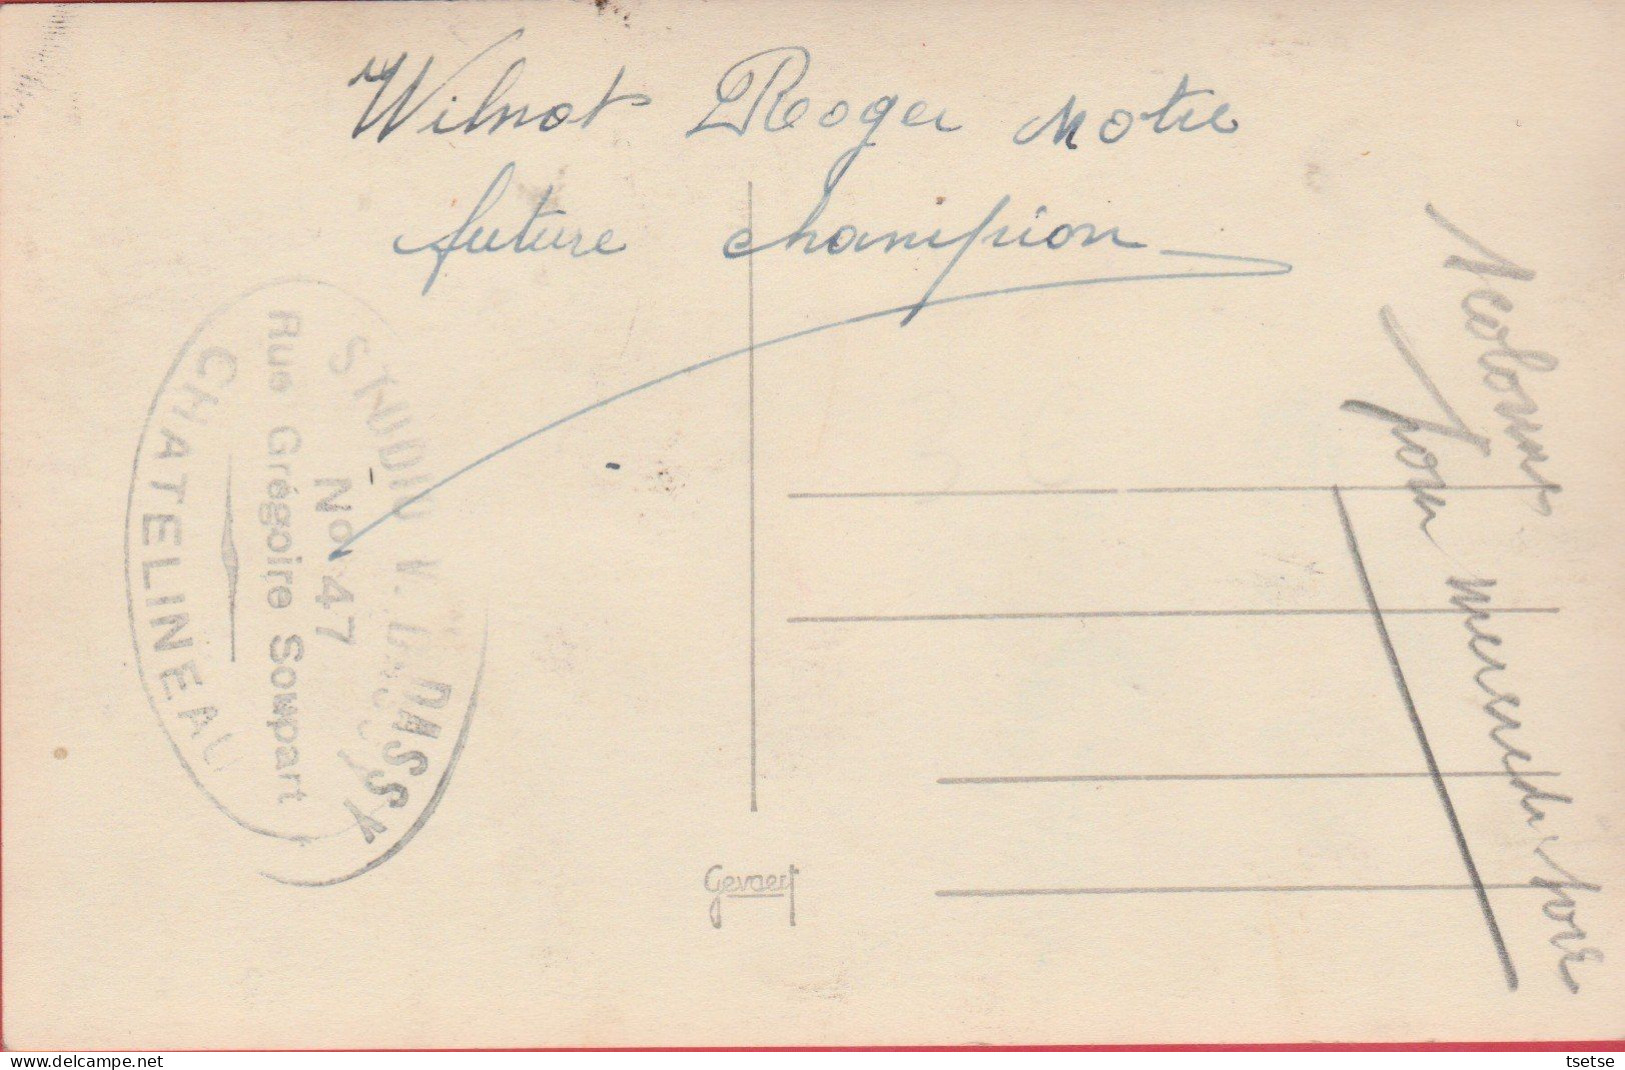 Wilmot Roger Notre
future champion
STUDIO V. DASSY
No 47
Rue Grégoire Soupart
CHATELINEAU
Gevaert
pour mercredi soir
delcampe.net
tsetse